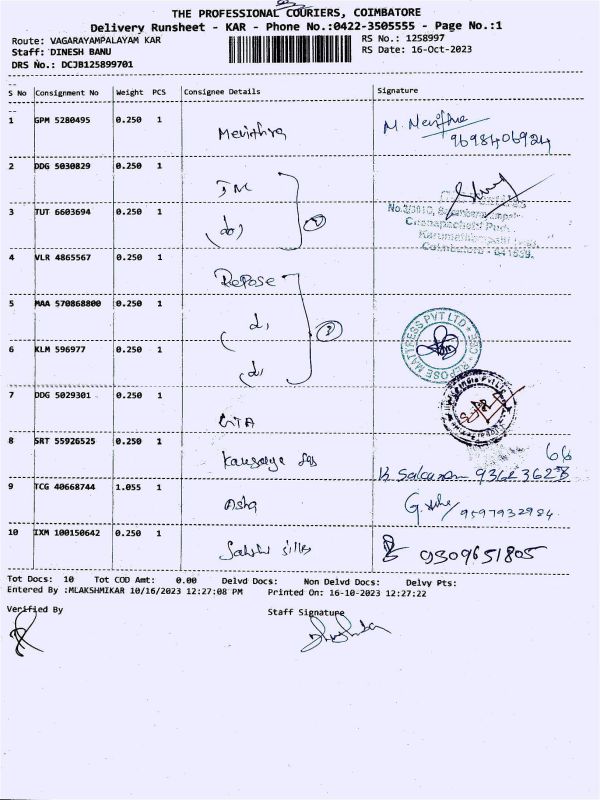 THE PROFESSIONAL COURIERS, COIMBATORE
Delivery Runsheet - KAR - Phone No.:0422-3505555 - Page No.:1
Route: VAGARAYAMPALAYAM KAR RS No.: 1258997
Staff: DINESH BANU RS Date: 16-Oct-2023
DRS No.: DCJB125899701
S No Consignment No Weight PCS Consignee Details Signature
1 GPM 5280495 0.250 1
9698406924
2 DDG 5030829 0.250 1
3 TUT 6603694 0.250 1
4 VLR 4865567 0.250 1 Repose
5 MAA 570868800 0.250 1
REPOSE MATTRESS PVT LTD
6 KLM 596977 0.250 1
7 DDG 5029301 0.250 1
8 SRT 55926525 0.250 1
9 TCG 40668744 1.055 1 Asha 9597932984
10 IXM 100150642 0.250 1 9309651805
Tot Docs: 10 Tot COD Amt: 0.00 Delvd Docs: Non Delvd Docs: Delvy Pts:
Entered By :MLAKSHMIKAR 10/16/2023 12:27:08 PM Printed On: 16-10-2023 12:27:22
Verified By Staff Signature